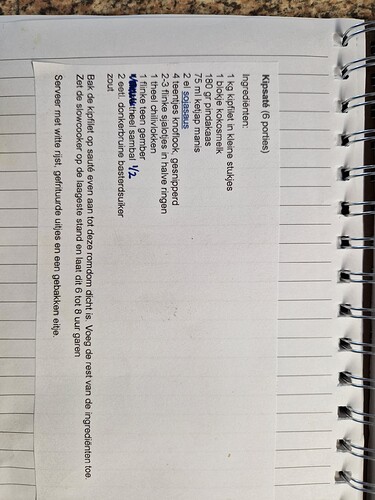 Kipsaté (6 porties)
Ingrediënten:
1 kg kipfilet in kleine stukjes
1 blokje kokosmelk
180 gr pindakaas
75 ml ketjap manis
2 el sojasaus
4 teentjes knoflook, gesnipperd
2-3 flinke sjalotjes in halve ringen
1 theel chilivlokken
1 flinke teen gember
theel sambal 1/2
2 eetl. donkerbruine basterdsuiker
zout
Bak de kipfilet op sauté even aan tot deze romdom dicht is. Voeg de rest van de ingrediënten toe.
Zet de slowcooker op de laageste stand en laat dit 6 tot 8 uur garen
Serveer met witte rijst, gefrituurde uitjes en een gebakken eitje.